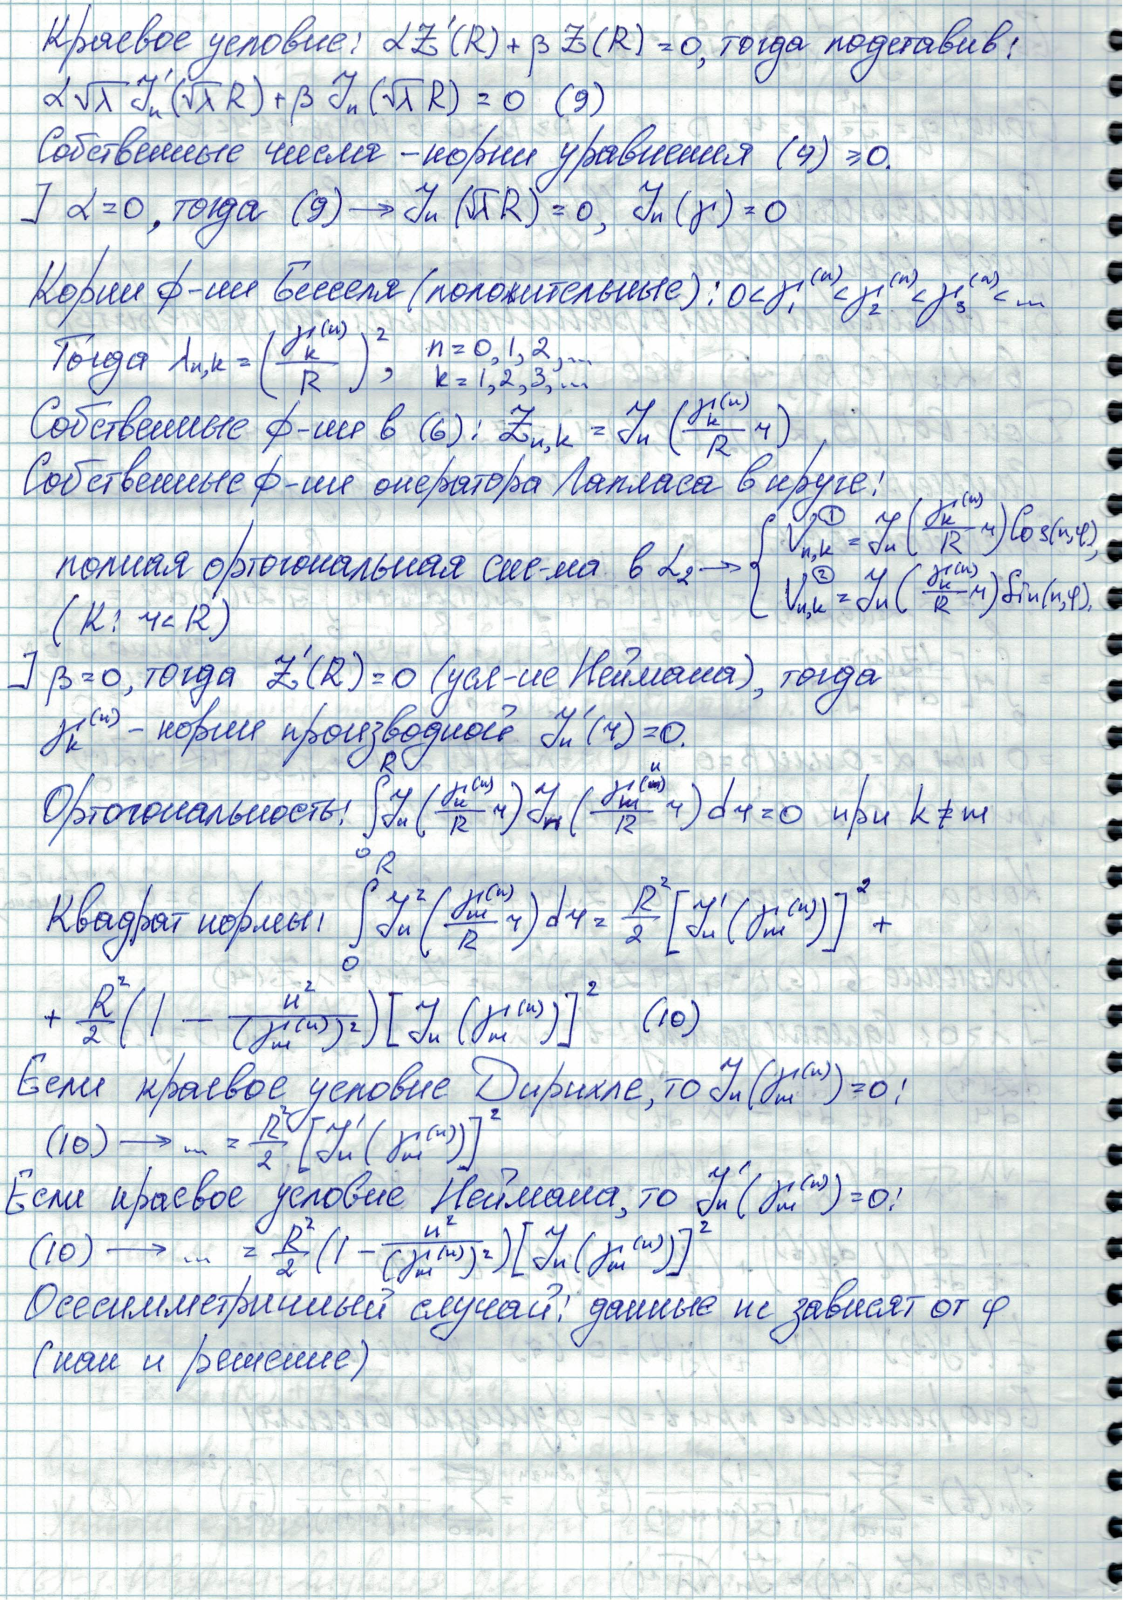 Краевое условие: αZ'(R) + βZ(R) = 0, тогда подставив:
α√λ J'ₙ(√λ R) + β Jₙ(√λ R) = 0 (9)
Собственные числа – корни уравнения (9) ≥ 0.
] α = 0, тогда (9) → Jₙ(√λ R) = 0, Jₙ(γ) = 0
Корни ф-ии Бесселя (положительные): 0 < γ₁⁽ⁿ⁾ < γ₂⁽ⁿ⁾ < γ₃⁽ⁿ⁾ < ...
Тогда λₙ,ₖ = (γₖ⁽ⁿ⁾/R)², n = 0, 1, 2, ... k = 1, 2, 3, ...
Собственные ф-ии в (6): Zₙ,ₖ = Jₙ(γₖ⁽ⁿ⁾/R r)
Собственные ф-ии оператора Лапласа в круге:
полная ортогональная сис-ма в L₂ → { Vₙ,ₖ^① = Jₙ(γₖ⁽ⁿ⁾/R r) Cos(nφ),
Vₙ,ₖ^② = Jₙ(γₖ⁽ⁿ⁾/R r) Sin(nφ).
(K: r < R)
] β = 0, тогда Z'(R) = 0 (усл-ие Неймана), тогда
γₖ⁽ⁿ⁾ – корни производной J'ₙ(r) = 0.
Ортогональность: ∫₀ᴿ Jₙ(γₖ⁽ⁿ⁾/R r) Jₙ(γₘ⁽ⁿ⁾/R r) dr = 0 при k ≠ m
Квадрат нормы: ∫₀ᴿ Jₙ²(γₘ⁽ⁿ⁾/R r) dr = R²/2 [J'ₙ(γₘ⁽ⁿ⁾)]² +
+ R²/2 (1 − n²/(γₘ⁽ⁿ⁾)²) [Jₙ(γₘ⁽ⁿ⁾)]² (10)
Если краевое условие Дирихле, то Jₙ(γₘ⁽ⁿ⁾) = 0:
(10) → ... = R²/2 [J'ₙ(γₘ⁽ⁿ⁾)]²
Если краевое условие Неймана, то J'ₙ(γₘ⁽ⁿ⁾) = 0:
(10) → ... = R²/2 (1 − n²/(γₘ⁽ⁿ⁾)²) [Jₙ(γₘ⁽ⁿ⁾)]²
Осесимметричный случай: данные не зависят от φ
(как и решение)